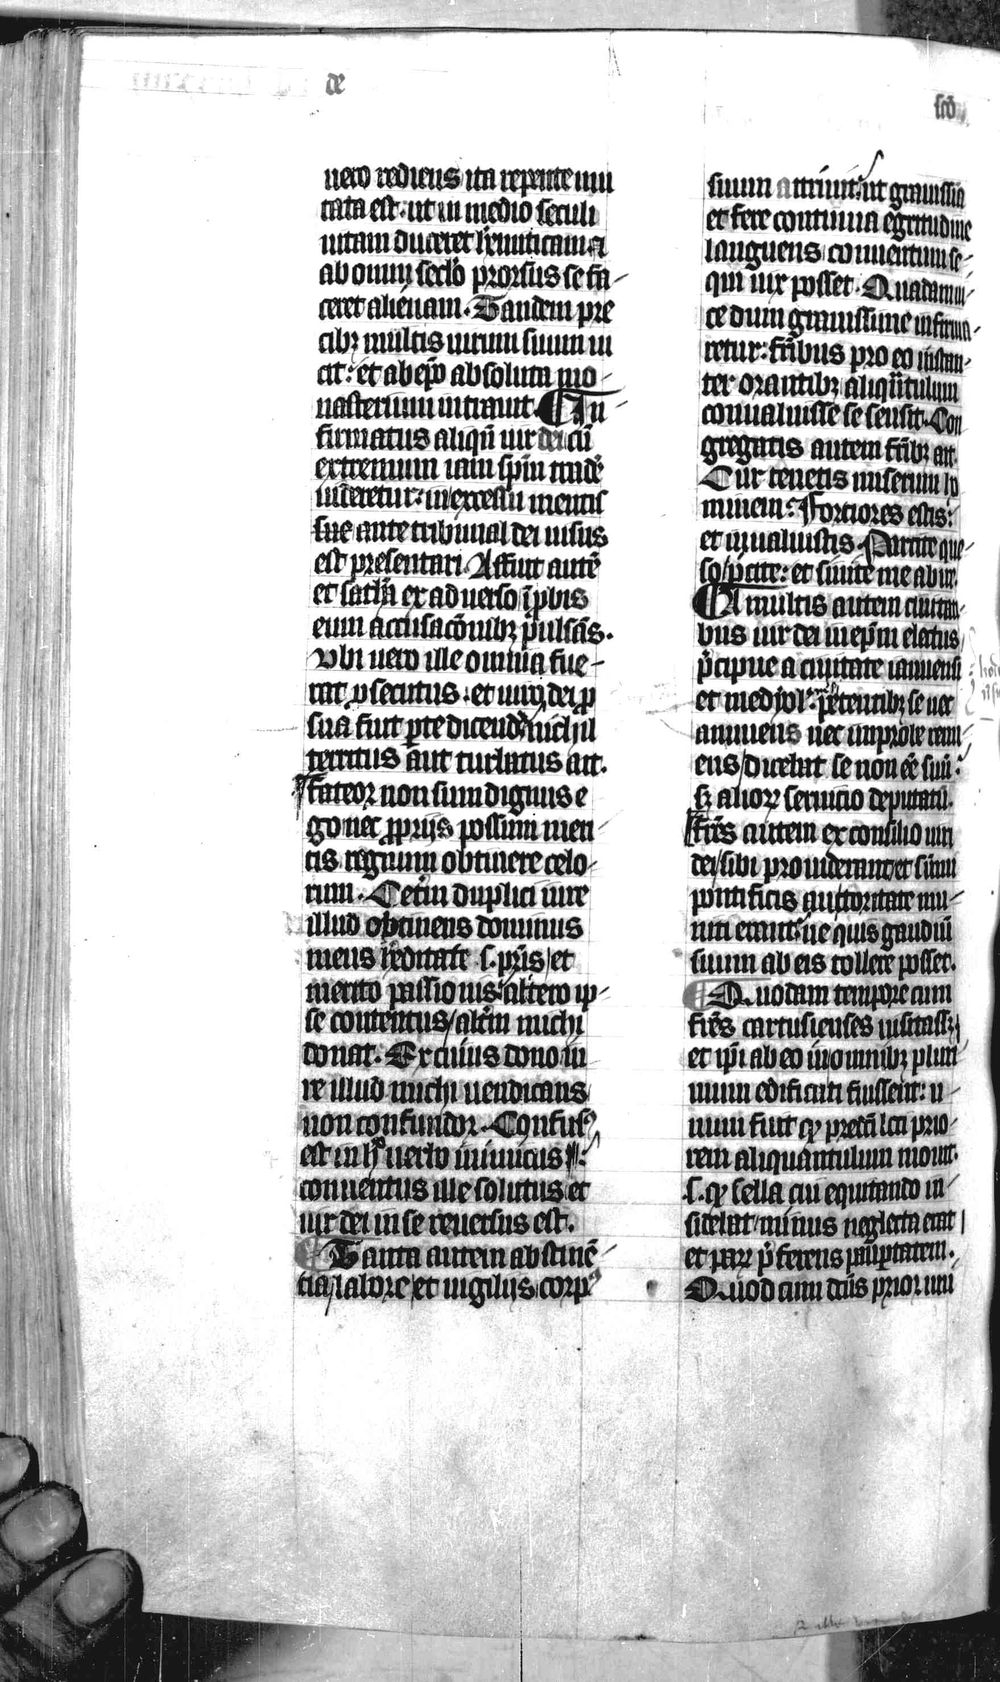 de
sco
uero rediens ita repente mu
tata est· ut in medio seculi
uitam duceret heremiticam ⁊
ab omni seclo prorsus se fa-
ceret alienam· Tandem pre
cibꝫ multis uirum suum ui
cit: et ab epo absoluta mo-
nasterium intrauit· In-
firmatus aliqn uir dei cu
extremum iam spm trade
uideretur: in excessu mentis
sue ante tribunal dei uisus
est presentari· Affuit aute
et sathan ex aduerso iprobis
eum accusaconibꝫ pulsans·
Vbi uero ille omnia fue-
rat psecutus· et uir dei p
sua fuit pte dicendu nichil
territus aut turbatus ait·
Fateor non sum dignus e
go nec pprijs possum meri
tis regnum obtinere celo-
rum· Ceterum duplici iure
illud obtinens dominus
meus hereditate s· pris et
merito passionis altero ip-
se contentus alterum michi
donat· Ex cuius dono iu-
re illud michi uendicans
non confundor· Confusus
est in hoc uerbo inimicus
conuentus ille solutus et
uir dei in se reuersus est·
Tanta autem abstine-
tia labore et uigilijs corpus
suum attriuit: ut grauissia
et fere continua egritudine
languens conuentum se-
qui uix posset· Quadam ui-
ce dum grauissime infirma-
retur: fribus pro eo instan-
ter orantibꝫ aliquantulum
conualuisse se sensit· Con
gregatis autem fribꝫ ait·
Cur tenetis miserum ho
minem: Fortiores estis:
et inualuistis· Parcite que-
so parcite: et sinite me abire·
A multis autem ciuitati-
bus uir dei in epm electus
precipue a ciuitate ianuensi
et mediol· petentibꝫ se nec
annuens nec improbe renu
ens dicebat se non esse suu:
sꝫ alioꝝ seruicio deputatu·
Fres autem ex consilio uiri
dei sibi prouiderant et summi
pontificis auctoritate mu-
niti erant: ne quis gaudiu
suum ab eis tollere posset·
Quodam tempore cum
fres cartusienses uisitassꝫ
et ipi ab eo in omnibꝫ pluri
mum edificati fuissent: u-
num fuit qꝫ predcm loci prio-
rem aliquantulum mouit·
·s· qꝫ sella cui equitando in-
sidebat minus neglecta erat
et parꝝ p ferens paupertatem·
Quod cum dcus prior uni